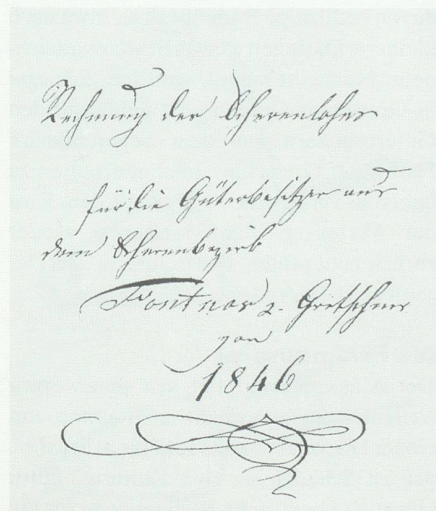 Rechnung der Scherenlohns
für die Güterbesitzer aus
dem Scherenbezirk
Fontnas & Gretschins
von
1846